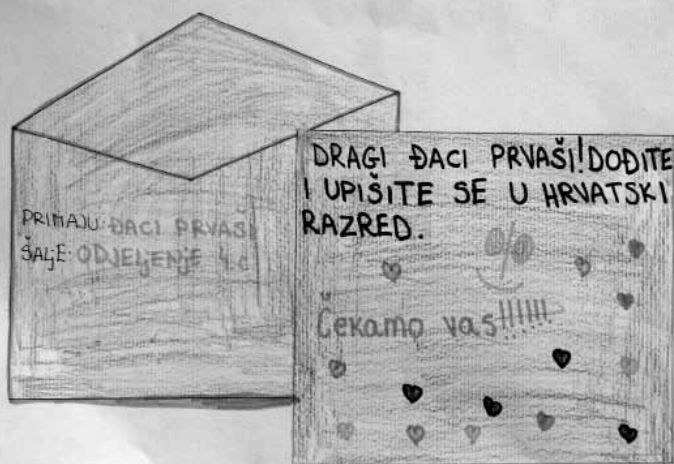 PRIMAJU: ĐACI PRVAŠI
ŠALJE: ODJELJENJE 4.c
DRAGI ĐACI PRVAŠI! DOĐITE
I UPIŠITE SE U HRVATSKI
RAZRED.
Čekamo vas!!!!!!